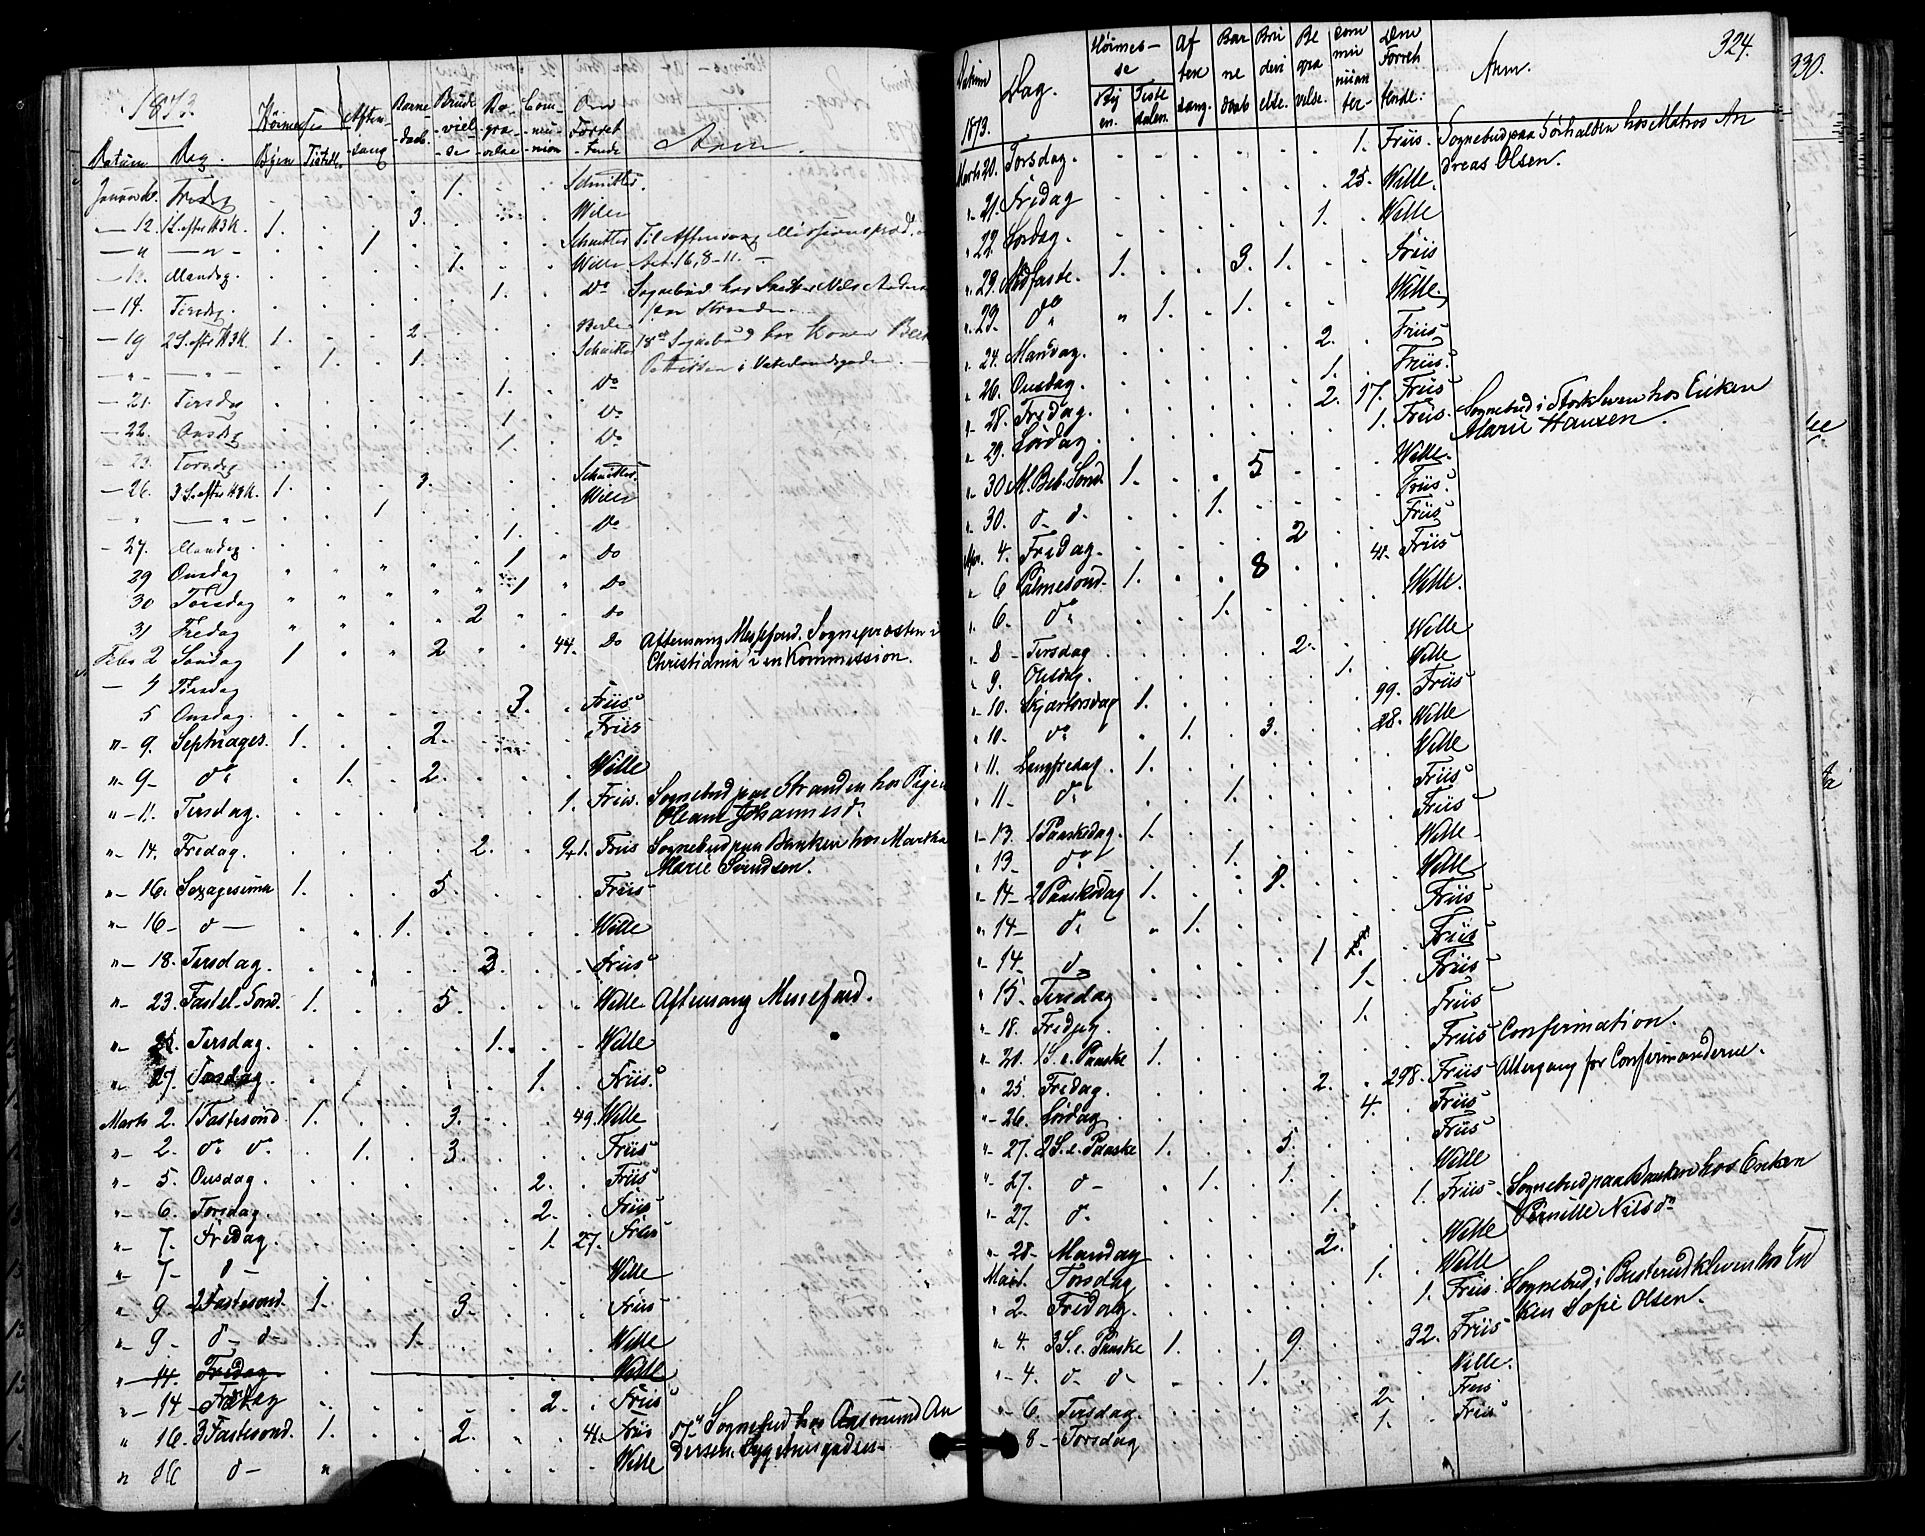 1873.
Datum Dag. Høimesse Byen Tistedl. Aftensang Barnedaab. Brudevielse Begravelse Communion Den Forrettende Anm.
Januar Fredag 1. Schnitler.
— 12. 1 S. efter H3K. 1. 3. Wille
— " — " — 1 Schnitler Til Aftensang Missionspræd.
— 13. Mandag. 1. Wille Act. 16, 8-11. —
— 14. Tirsdag. 1. Do Sognebud hos Nils Anders
paa Stranden.
— 19 2 S. efter H3K. 1. 2. 18de Sognebud hos Konen
— " — " — 1. 1. Schnitler
— 21. Tirsdag 1. Do
— 22. Onsdag 1 Do
— 23. Torsdag 1. Do
— 26. 3 S. efter H3K. 1. 3. Schnitler.
— " — " — 1 Wille
— 27. Mandag. 1. Do
29 Onsdag 1 Do
30 Torsdag 1 Do
31 Fredag 2 Do
Febr 2 Søndag 1 2 44. Do Aftensang Messefald. Sognepræsten i
Christiania i en Kommission.
— 4 Tirsdag
5 Onsdag. 3. Friis
"- 9. Septuages. 1. 2. Friis
"- 9- do 1. 2. Wille
"- 11. Tirsdag. 1. Friis. Sognebud paa Stranden hos Pigen
Oleane Johannesd.
"- 14. Fredag. 2. 9+1. Friis Sognebud paa Banken hos Martha
Marie Svendsen.
"- 16. Sexagesima 1. 5. Friis
"- 16- d — 1. Wille
"- 18. Tirsdag. 3. Friis
"- 23. Fastel. Sønd. 1. 5. Wille Aftensang Messefald.
"- Tirsdag. 1. Wille
"- 27. Torsdag. 1. Friis.
Marts 2. 1 Fastesønd 1. 3. 49. Wille
"- 2. do do 1. 3. Friis
"- 5. Onsdag. 2. Friis
"- 6. Torsdag. 2. Friis
"- 7. Fredag. 1. 27. Friis
"- 7- d — Wille
" 9 2 Fastesond. 1. 3. Friis
"- 9- d- d- 1. Wille
"- 14. Fredag Wille
"- 14 Fredag 2. Friis
" 16. 3 Fastesond. 1. 2. 41. Friis 17de Sognebud hos Aasmund An
dersen,
" 16 d — " Wille
324.
Datum Dag. Høimesse Byen. Tistedalen. Aftensang. Barnedaab Brudevielse. Begravelse. Communianter- Den Forrettende: Anm.
1873.
Marts 20. Torsdag. 1. Friis. Sognebud paa Sørhalden hos Matros An
dreas Olsen.
"- 21. Fredag 25. Wille.
" 22. Lørdag. 1. Wille
" 23. Midfaste. 1. 3. 1. Friis
" 23. do " 1. 1. Wille.
" 24. Mandag. 2. Friis
" 26. Onsdag. 1. Friis.
"- 28. Fredag. 2. 17. Friis
" 29. Lørdag. 1. Friis. Sognebud i Storkleven hos Enken
Marie Hansen.
"- 30 M. Beb. Sønd. 1. 5 Wille.
" 30. d- d. 1. Friis.
Apr. 4. Fredag. 2 Friis
"- 6 Palmesond. 1. 8 41. Friis
" 6. do 1. Wille.
" 8 - Tirsdag 2. Wille
" 9. Onsdag. 1. Wille
"- 10. Skjærtorsdag 1. 99. Friis
" 10. do " 1. 3. 28. Wille
" 11. Langfredag. 1. Wille
" 11 - d. 1. Friis
"- 13. 1 Paaskedag. 1. Friis
" 13 do 1. Wille.
"- 14 - 2 Paaskedag 1. 8. Wille
" 14 — d. " 1. Friis
"- 14- d- 1 Friis
"- 15. Tirsdag 1. Friis
"- 18. Fredag. 1. Friis
"- 20. 1 S. e. Paaske 1. Friis Confirmation.
" 25. Fredag. 2. 298. Friis Altergang for Confirmanderne.
"- 26. Lørdag 4. Friis
"- 27. 2 S. e. Paaske 1. 5. Friis
"- 27. d - 1. 1. Wille
"- 27. d. 1. 1. Friis. Sognebud paa Banken hos Enken
Pernille Nilsd.
"- 28- Mandag 2. Wille
Mai 1. Torsdag 1. Wille
" 2. Fredag. 1. Friis. Sognebud i Busterudkleven hos En
ken Sofie Olsen.
" 4. 3 S. e. Paaske 1. 9. 32. Friis
"- 4. d- d- 1. Wille.
"- 6. Tirsdag. 2. Friis
8 - Torsdag 1. Friis
330.